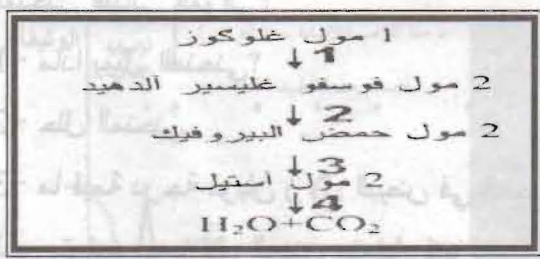 1 مول غلوكوز
↓ 1
2 مول فوسفو غليسير ألدهيد
↓ 2
2 مول حمض البيروفيك
↓ 3
2 مول استيل
↓ 4
H₂O+CO₂